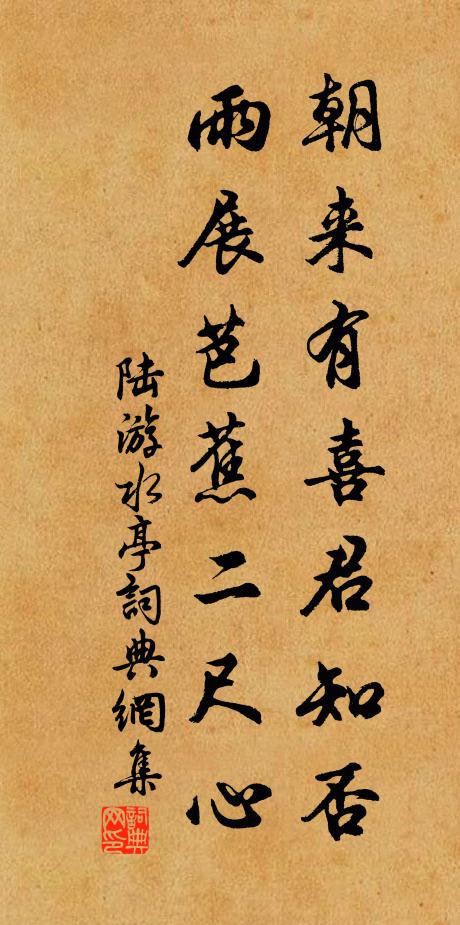 朝来有喜君知否
雨展芭蕉二尺心
陆游水亭詞典網集
詞典网印